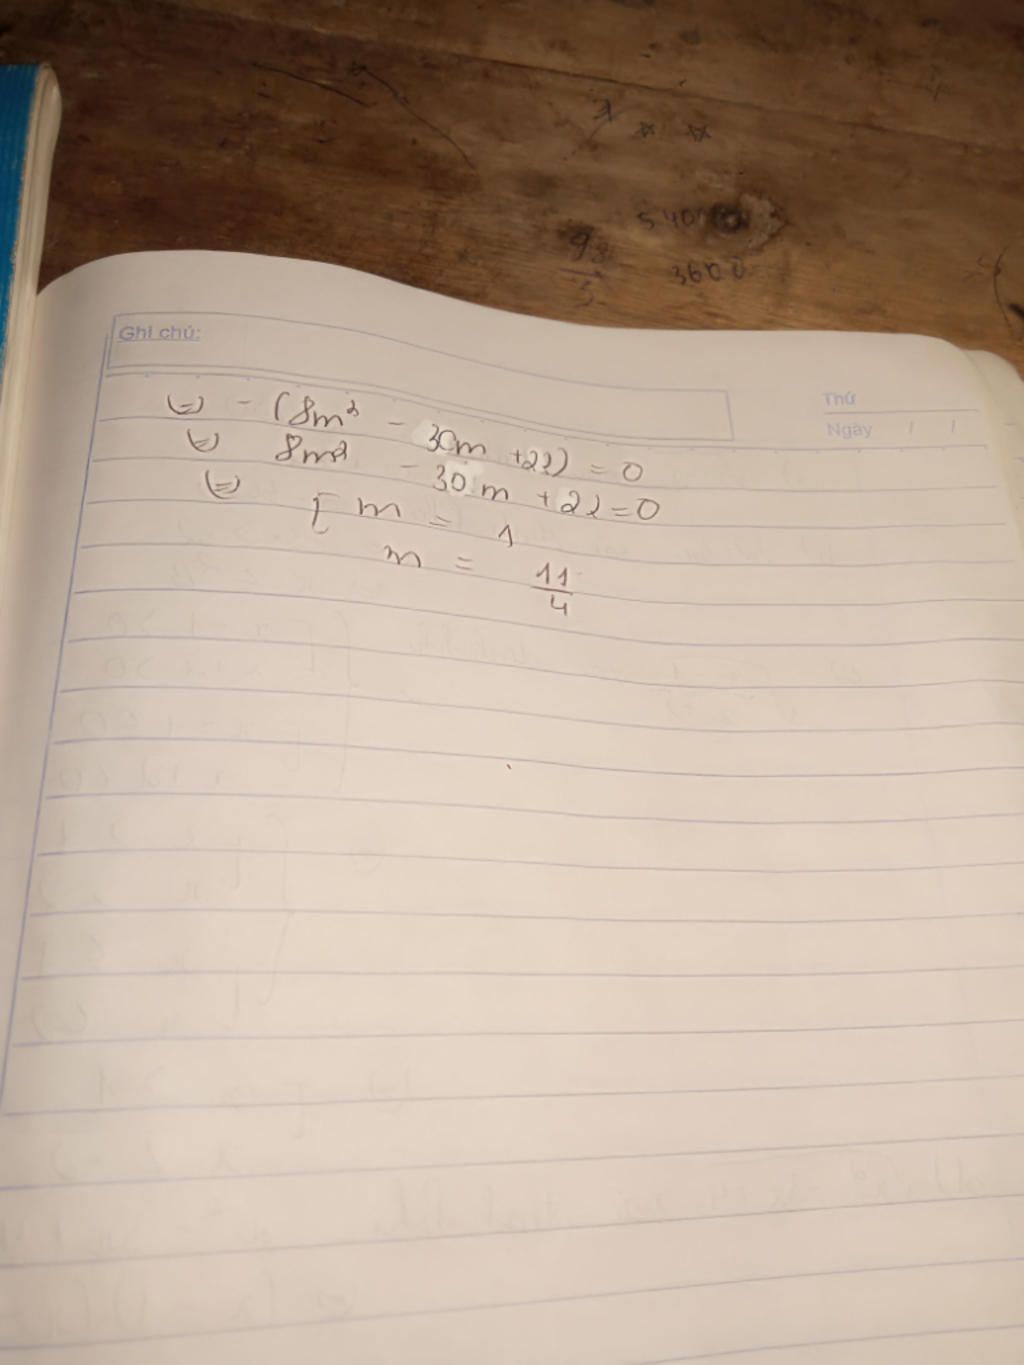 5400
98
3600
3
Ghi chú:
Thứ
Ngày / /
⇔ - (8m² - 30m + 22) = 0
⇔ 8m² - 30m + 22 = 0
⇔ [ m = 1
m = 11/4